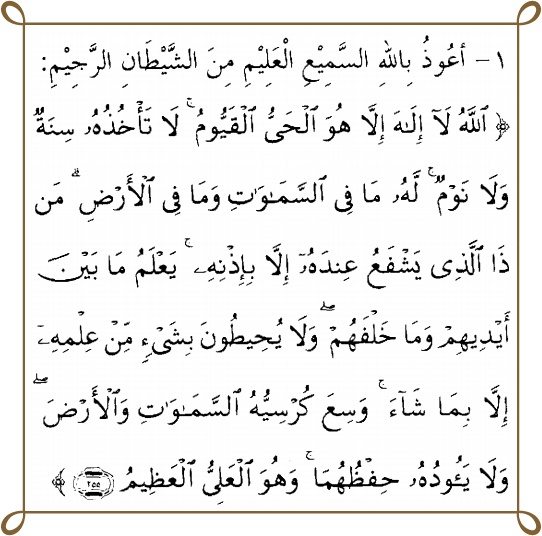 ١- أعُوذُ بِاللهِ السَّمِيْعِ الْعَلِيْمِ مِنَ الشَّيْطَانِ الرَّجِيْمِ:
﴿ ٱللَّهُ لَآ إِلَـٰهَ إِلَّا هُوَ ٱلْحَىُّ ٱلْقَيُّومُ ۚ لَا تَأْخُذُهُۥ سِنَةٌ
وَلَا نَوْمٌ ۚ لَّهُۥ مَا فِى ٱلسَّمَـٰوَٰتِ وَمَا فِى ٱلْأَرْضِ ۗ مَن
ذَا ٱلَّذِى يَشْفَعُ عِندَهُۥٓ إِلَّا بِإِذْنِهِۦ ۚ يَعْلَمُ مَا بَيْنَ
أَيْدِيهِمْ وَمَا خَلْفَهُمْ ۖ وَلَا يُحِيطُونَ بِشَىْءٍ مِّنْ عِلْمِهِۦٓ
إِلَّا بِمَا شَآءَ ۚ وَسِعَ كُرْسِيُّهُ ٱلسَّمَـٰوَٰتِ وَٱلْأَرْضَ ۖ
وَلَا يَـُٔودُهُۥ حِفْظُهُمَا ۚ وَهُوَ ٱلْعَلِىُّ ٱلْعَظِيمُ ٢٥٥ ﴾